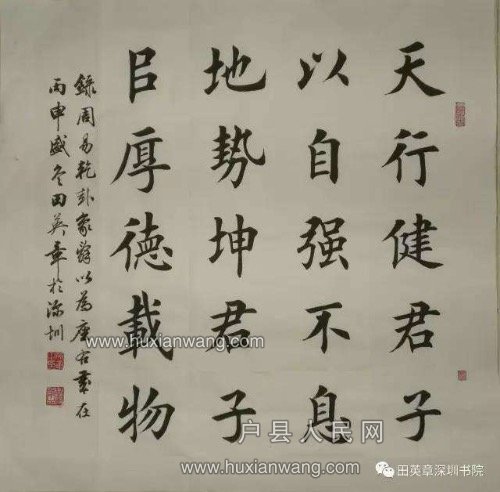 天行健君子
以自强不息
地勢坤君子
㠯厚德載物
錄周易乾卦象辭以為座右
丙申盛冬田英章於深圳
www.huxianwang.com
户县人民网
www.huxianwang.com
田英章深圳书院